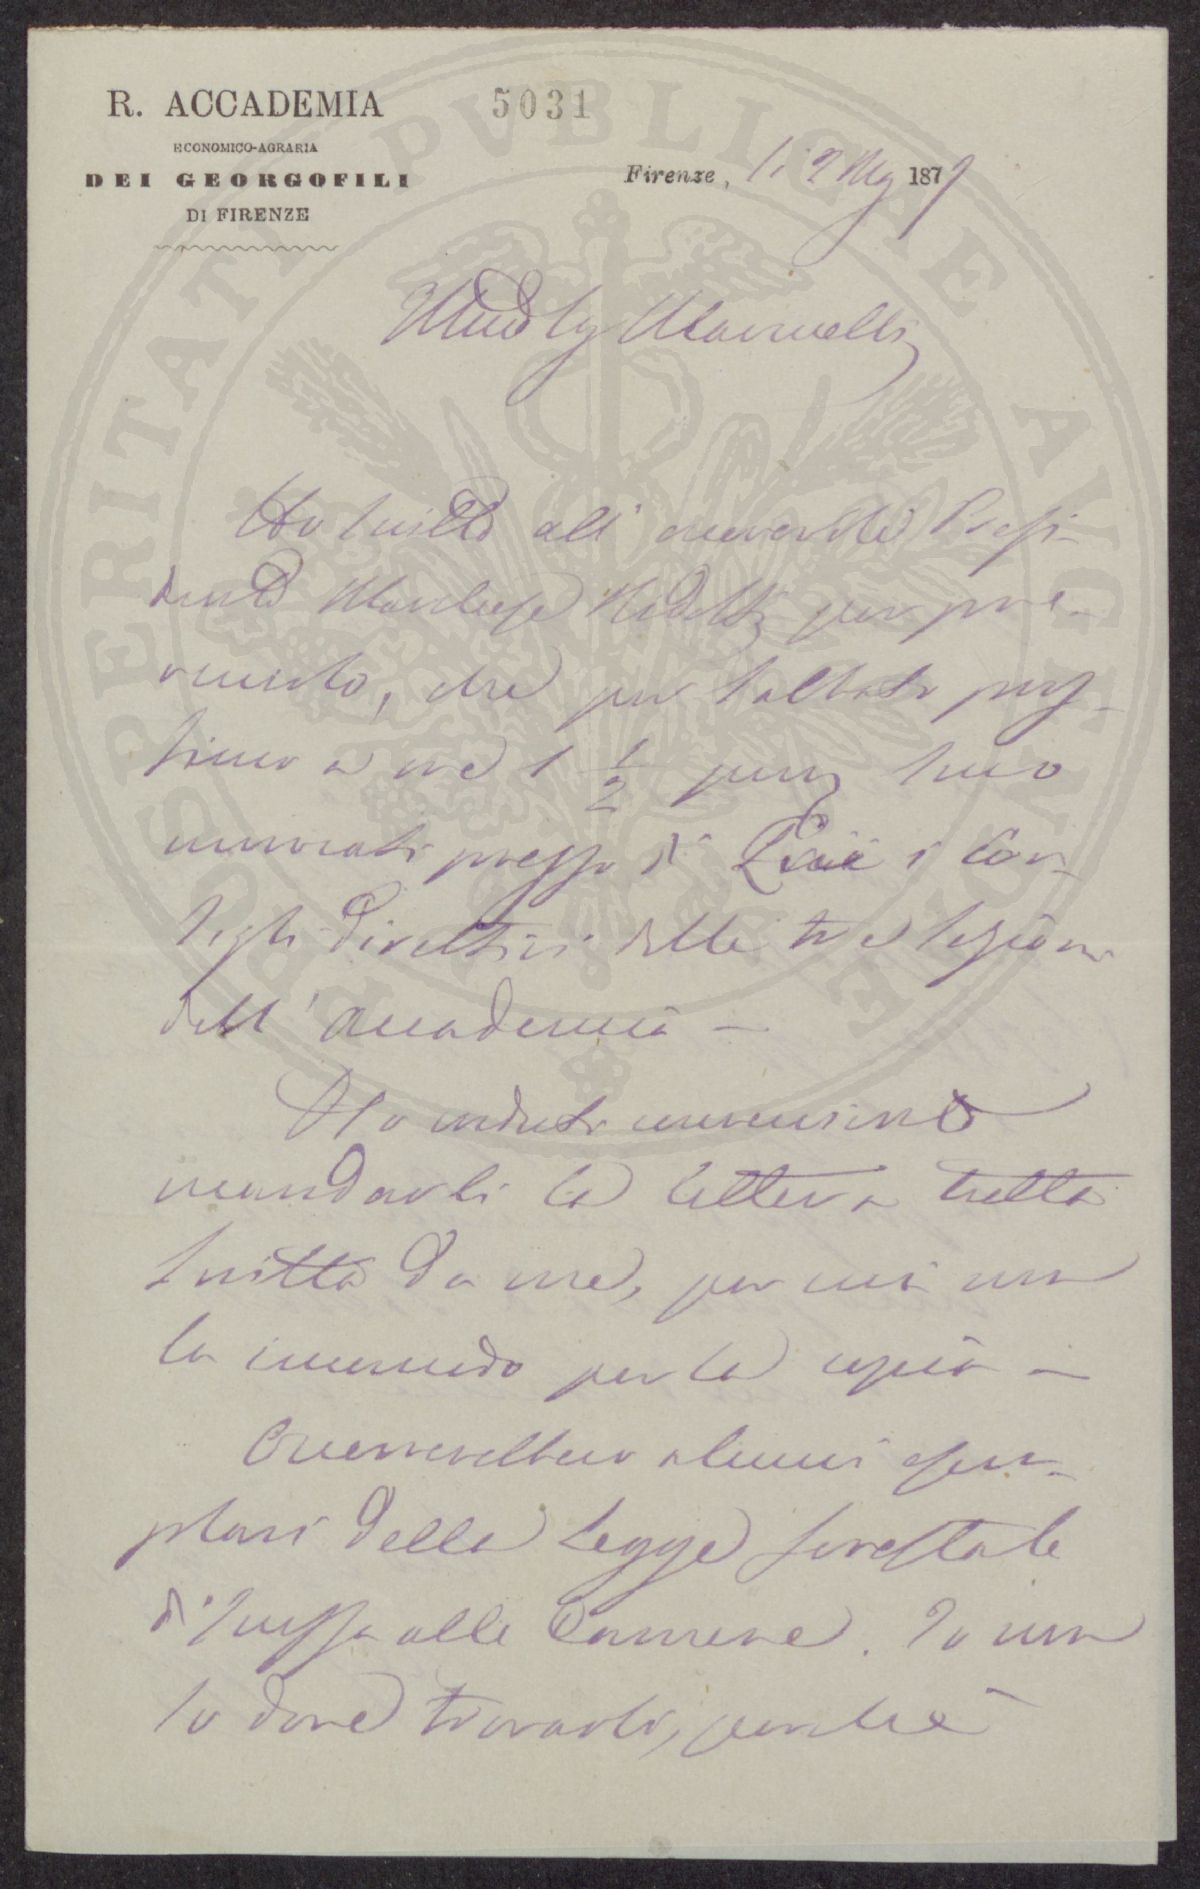 R. ACCADEMIA
ECONOMICO-AGRARIA
DEI GEORGOFILI
DI FIRENZE
5031
Firenze, li 2 Mg 1877
Sig Marinelli
Ho scritto all' onorevole Presi-
dente Marchese Ridolfi per pre-
venirlo, che per sabbato pros-
simo a ore 1 1/2 pom sieno
convocati presso di Lui i Con-
sigli direttivi delle tre sezioni
dell' Accademia —
Ho creduto conveniente
mandarli la lettera tutta
scritta da me, per cui non
la incomodo per la copia —
Occorrerebbero alcuni esem-
plari della legge forestale
discussa alle Camere. Io non
so dove trovarli, perchè
PROSPERITATI PVBLICAE AVGENDAE